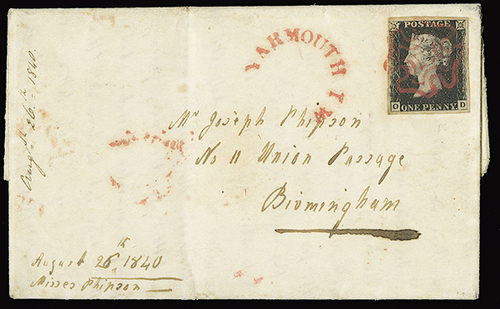 Augt. 26th. 1840.
YARMOUTH I W
POSTAGE
O ONE PENNY D
Mr Joseph Phipson
No 11 Union Passage
Birmingham
August 26th 1840
Misses Phipson